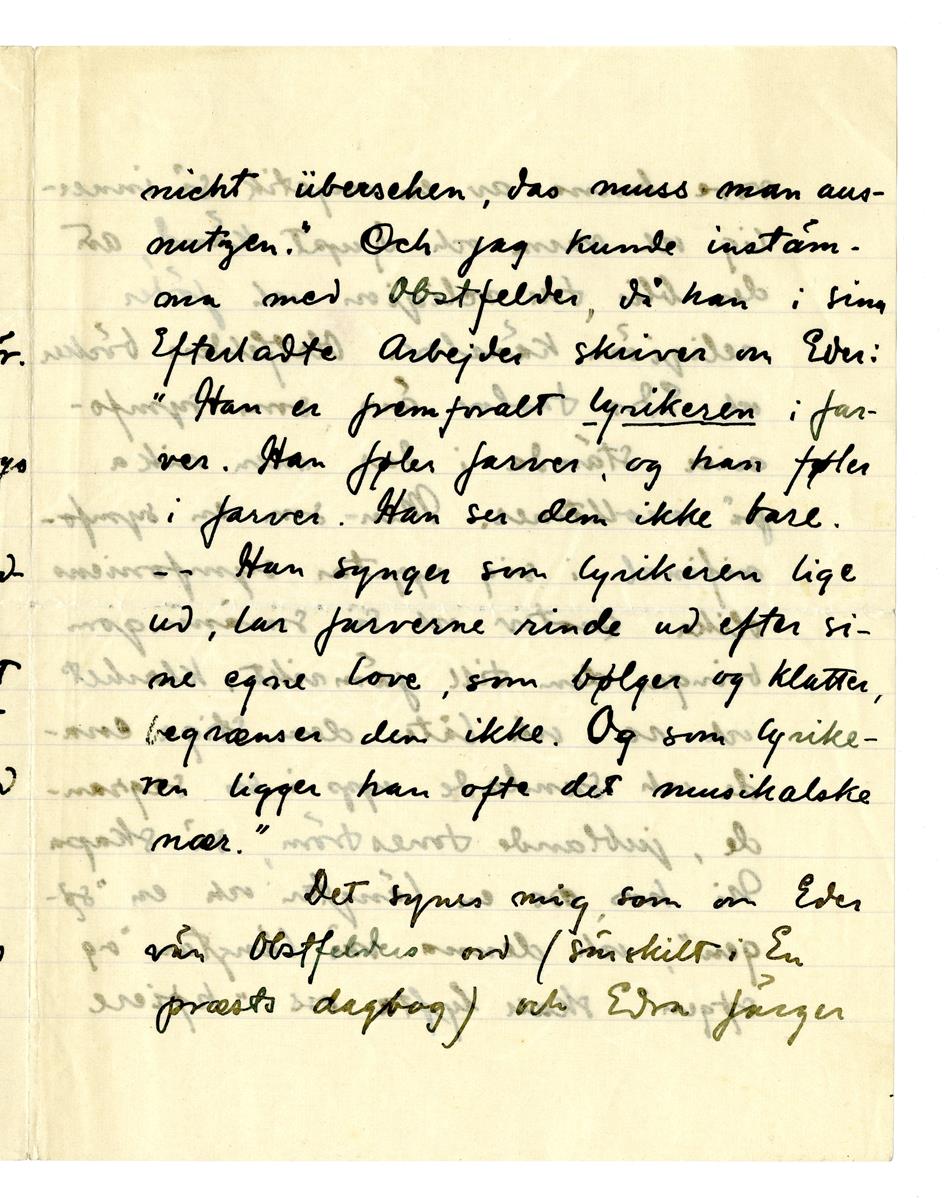 nicht übersehen, das muss man aus-
nutzen." Och jag kunde instäm-
ma med Obstfelder, då han i sina
Efterladte Arbejder skriver om Eder:
"Han er fremforalt lyrikeren i far-
ver. Han føler farver, og han føler
i farver. Han ser dem ikke bare.
-- Han synger som lyrikeren lige
ud, lar farverne rinde ud efter si-
ne egne love, som bølger og klatter,
begrænser dem ikke. Og som lyrike-
ren ligger han ofte det musikalske
nær."
Det synes mig som om Eder
vän Obstfelders ord (särskilt i En
præsts dagbog) och Edra färger